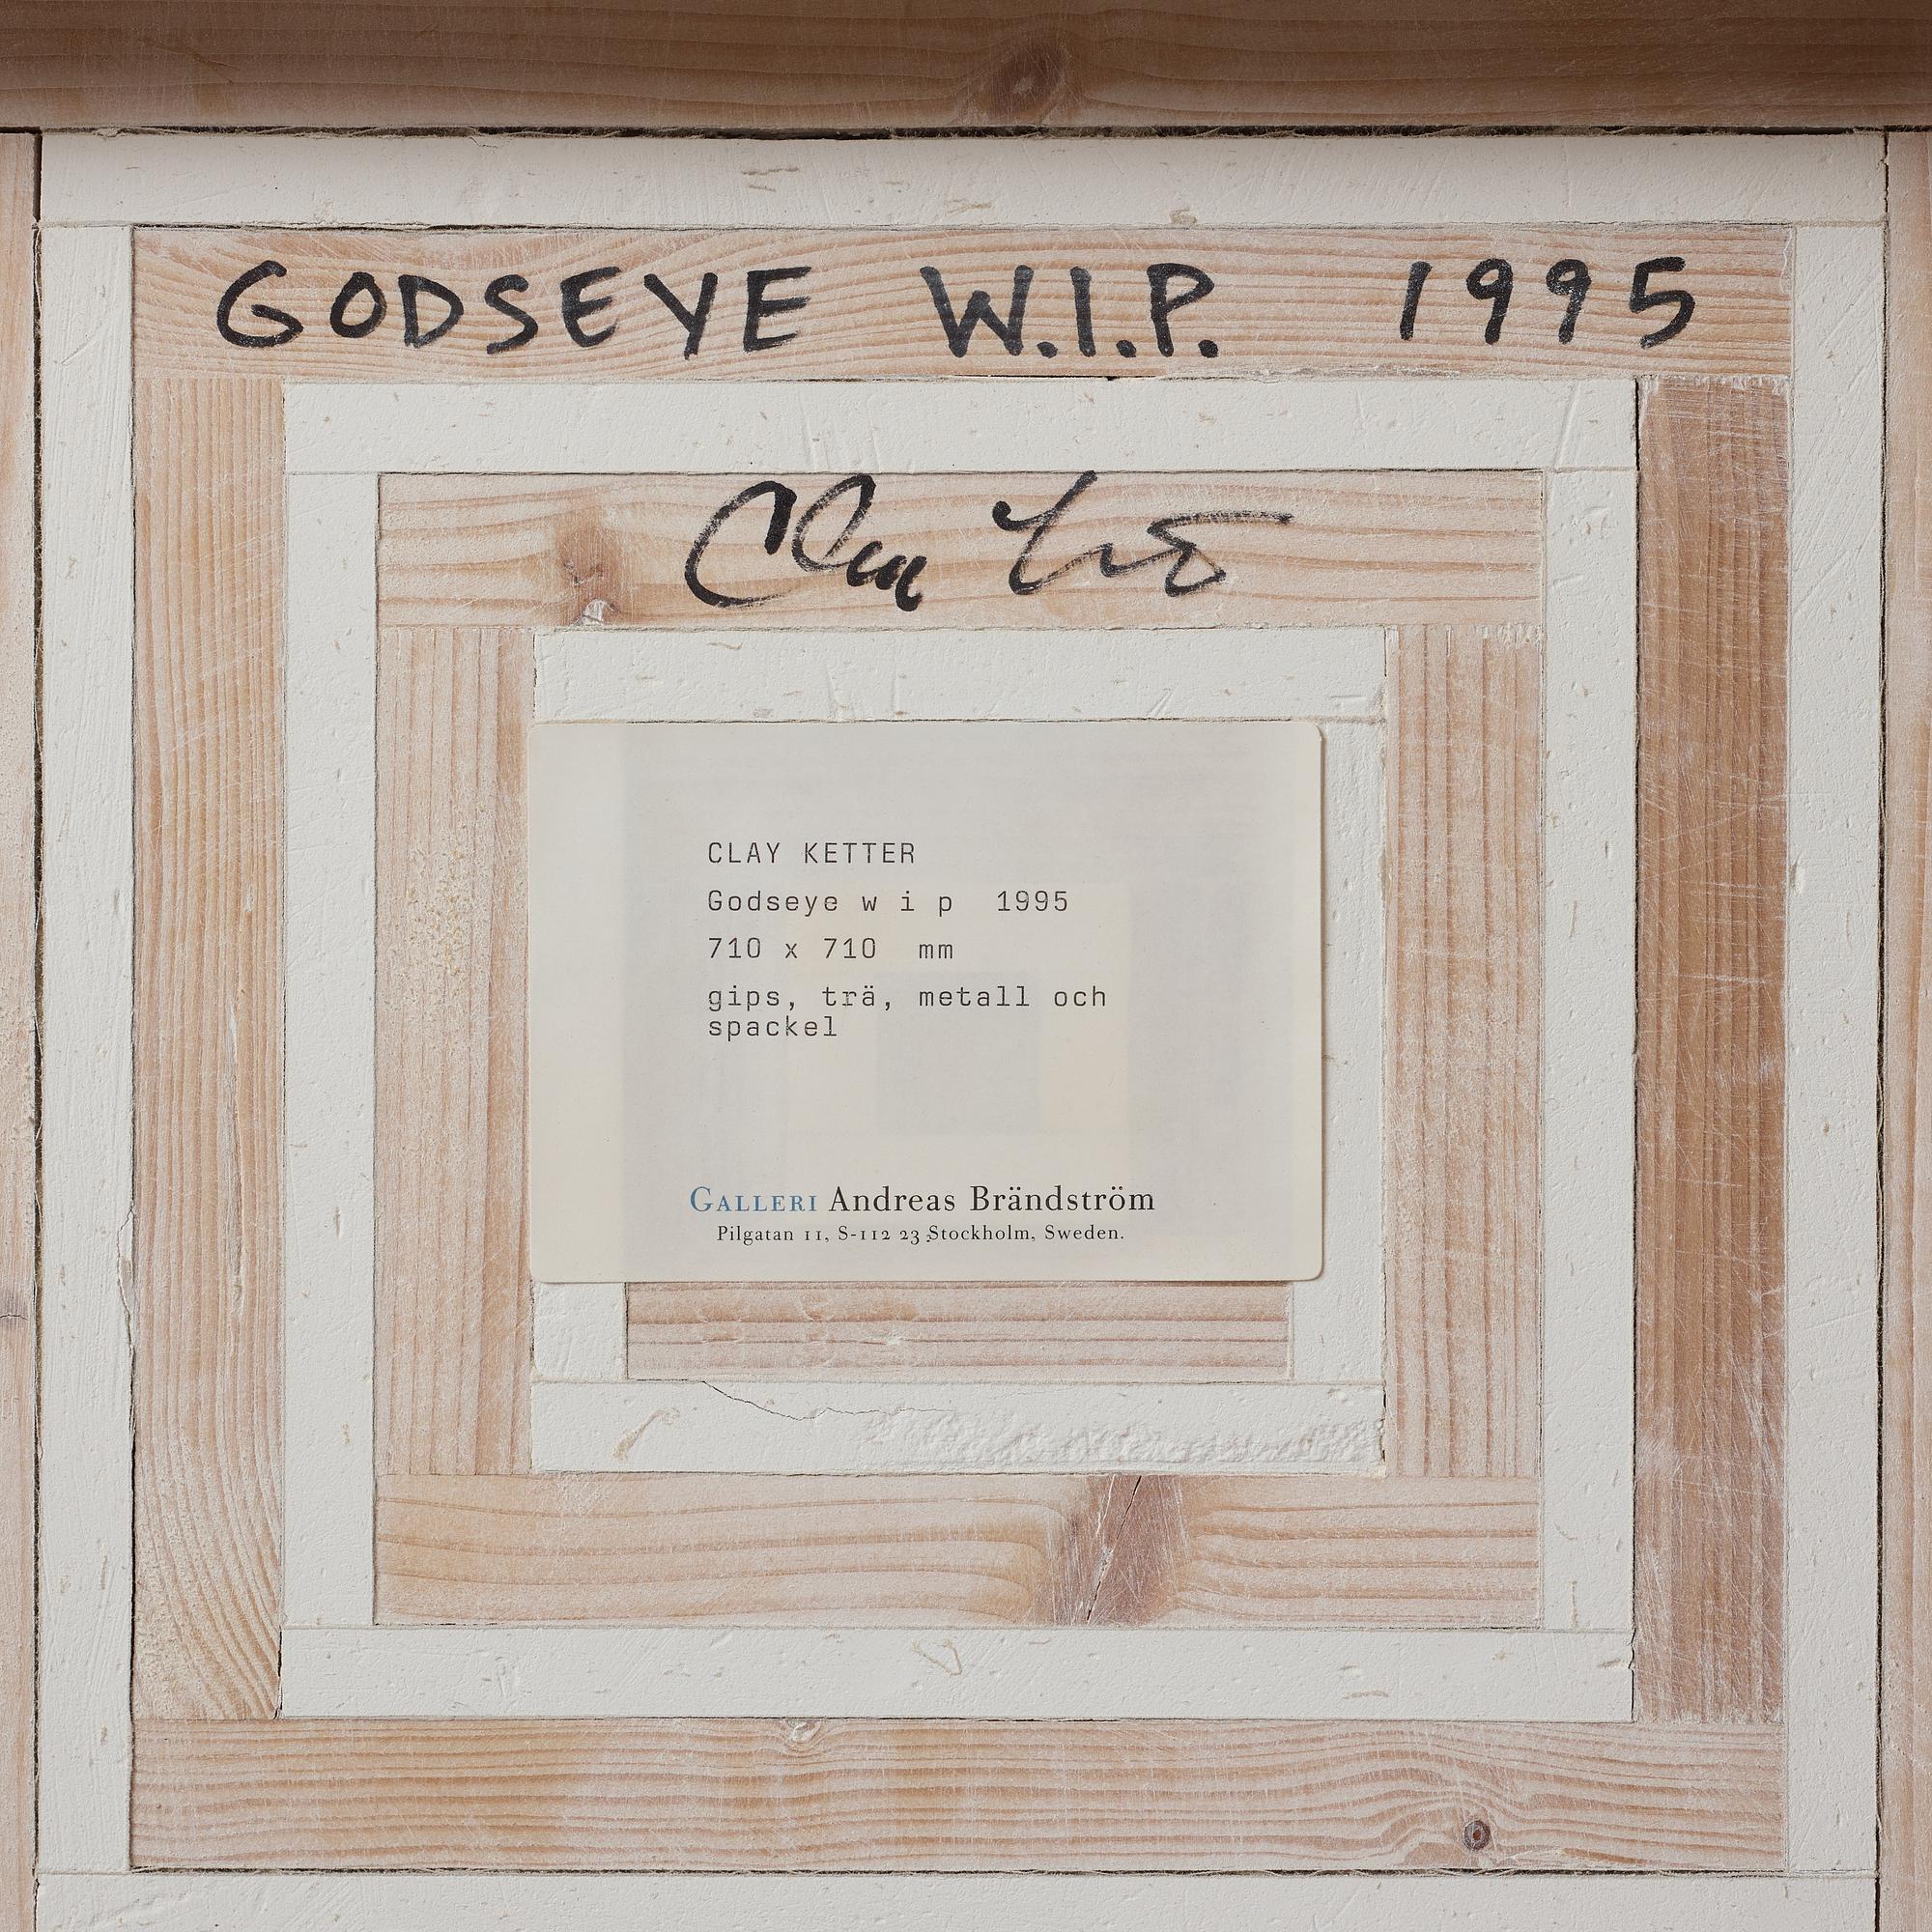 GODSEYE W.I.P. 1995
CLAY KETTER
Godseye w i p 1995
710 x 710 mm
gips, trä, metall och
spackel
GALLERI Andreas Brändström
Pilgatan 11, S-112 23 Stockholm, Sweden.